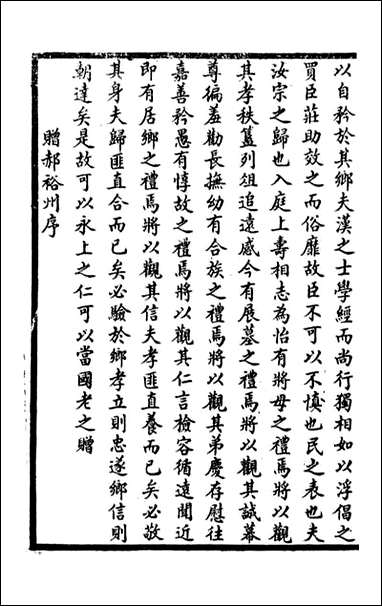 以自矜於其鄉夫漢之士學經而尚行獨相如以浮倡之
買臣莊助效之而俗靡故臣不可以不慎也民之表也夫
汝宗之歸也入庭上壽相志為怡有將母之禮焉將以觀
其孝秩簋列俎追遠感今有展墓之禮焉將以觀其誠幕
尊徧羞勸長撫幼有合族之禮焉將以觀其弟慶存慰往
嘉善矜愚有惇故之禮焉將以觀其仁言檢容循遠聞近
即有居鄉之禮焉將以觀其信夫孝匪直養而已矣必敬
其身夫歸匪直合而已矣必驗於鄉孝立則忠遂鄉信則
朝達矣是故可以永上之仁可以當國老之贈
贈郝裕州序